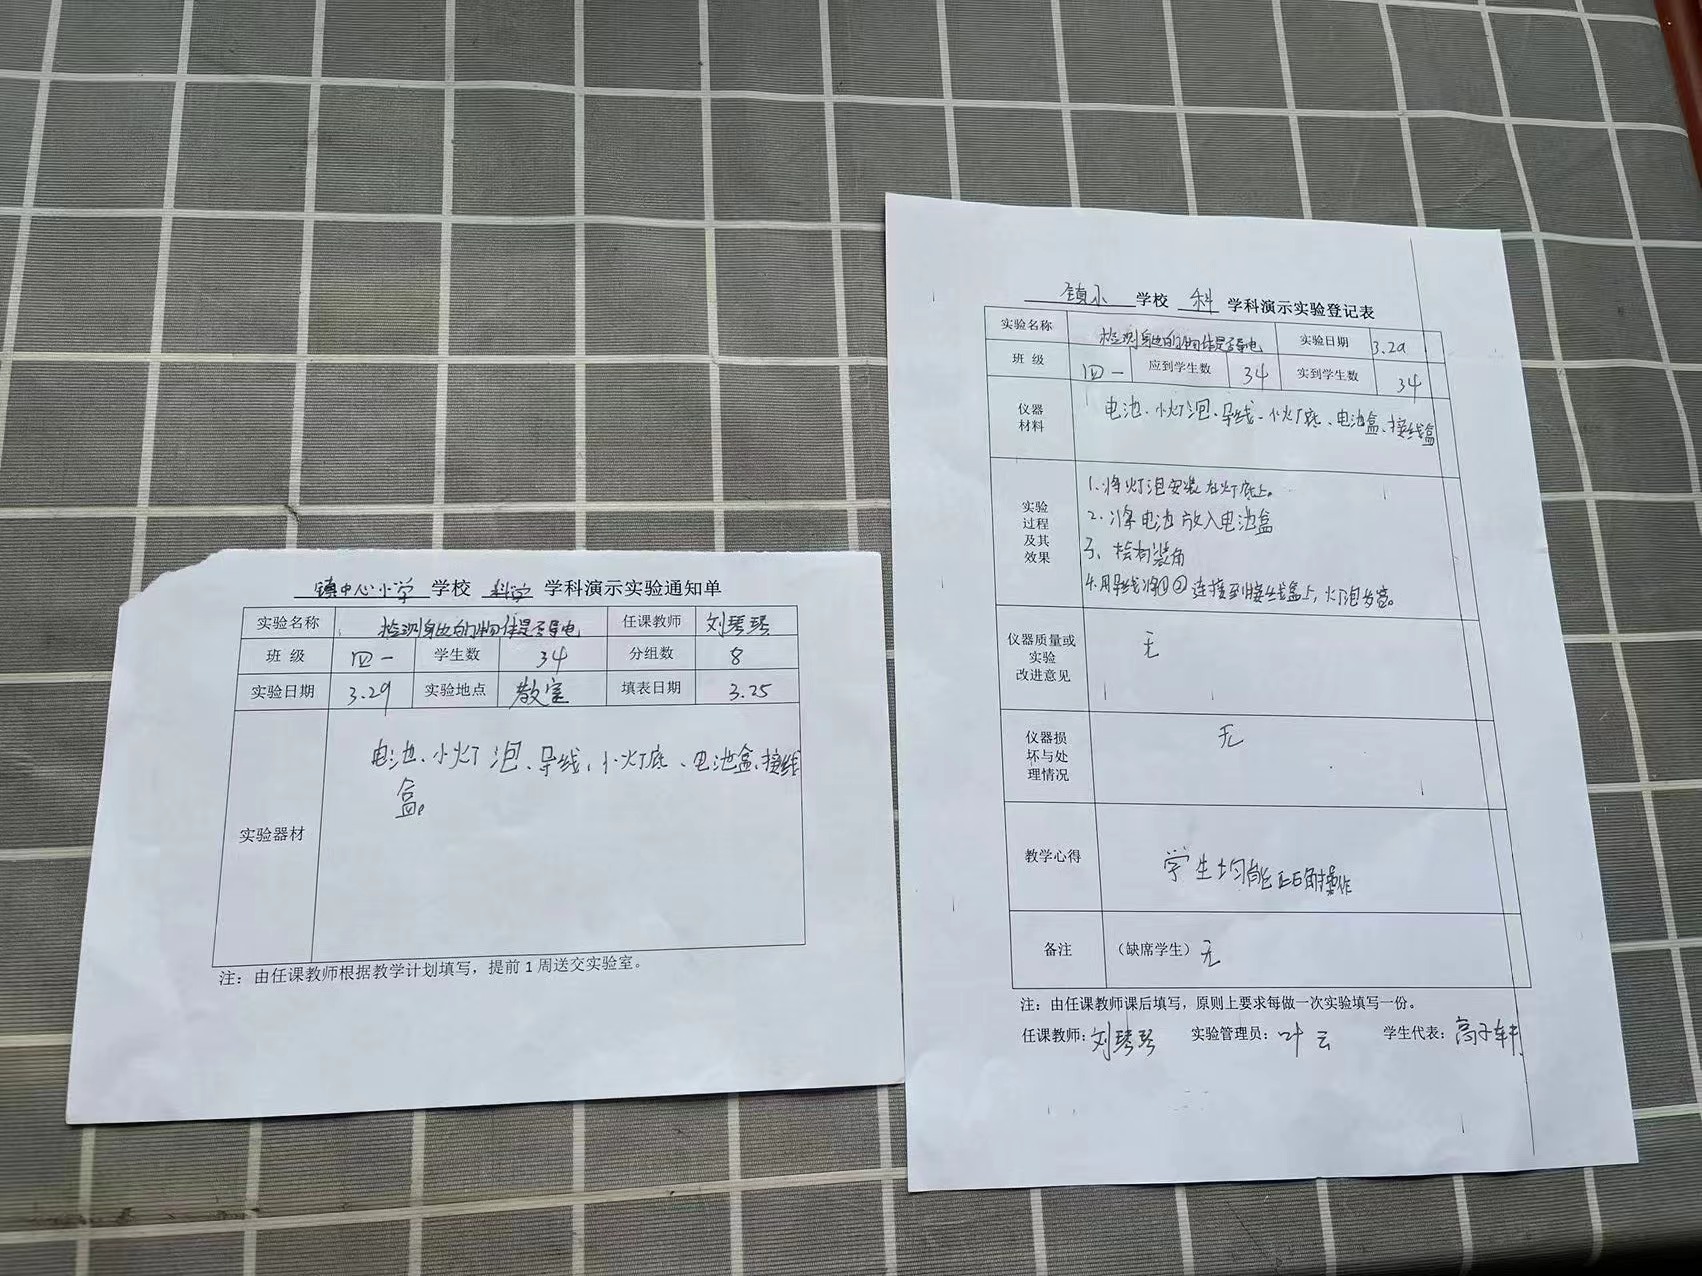 镇中心小学 学校 科学 学科演示实验通知单
实验名称 检测身边的物体是否导电 任课教师 刘琴琴
班 级 四一 学生数 34 分组数 8
实验日期 3.29 实验地点 教室 填表日期 3.25
实验器材 电池、小灯泡、导线、小灯底、电池盒、接线
盒。
注：由任课教师根据教学计划填写，提前1周送交实验室。
镇小 学校 科 学科演示实验登记表
实验名称 检测身边的物体是否导电 实验日期 3.29
班 级 四一 应到学生数 34 实到学生数 34
仪器
材料
电池、小灯泡、导线、小灯底、电池盒、接线盒
实验
过程
及其
效果
1.将灯泡安装在灯底上。
2.将电池放入电池盒
3、检
4.用导线将①②连接到接线盒上，灯泡发亮。
仪器质量或
实验
改进意见
无
仪器损
坏与处
理情况
无
教学心得 学生均能正确操作
备注 （缺席学生）无
注：由任课教师课后填写，原则上要求每做一次实验填写一份。
任课教师：刘琴琴 实验管理员：叶云 学生代表：高子轩